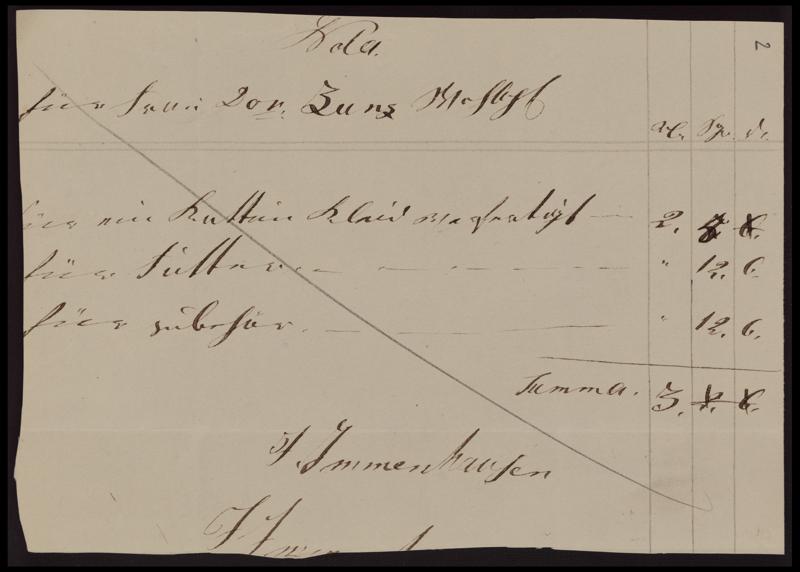 Nota.
2
für Frau Dor. Zunz
rl. Sgr. d.
für ein Kattun Kleid angefertigt — 2.
für Futter — " 12. 6.
für zubehör. — " 12. 6.
Summa. 3.
F. Immenhausen